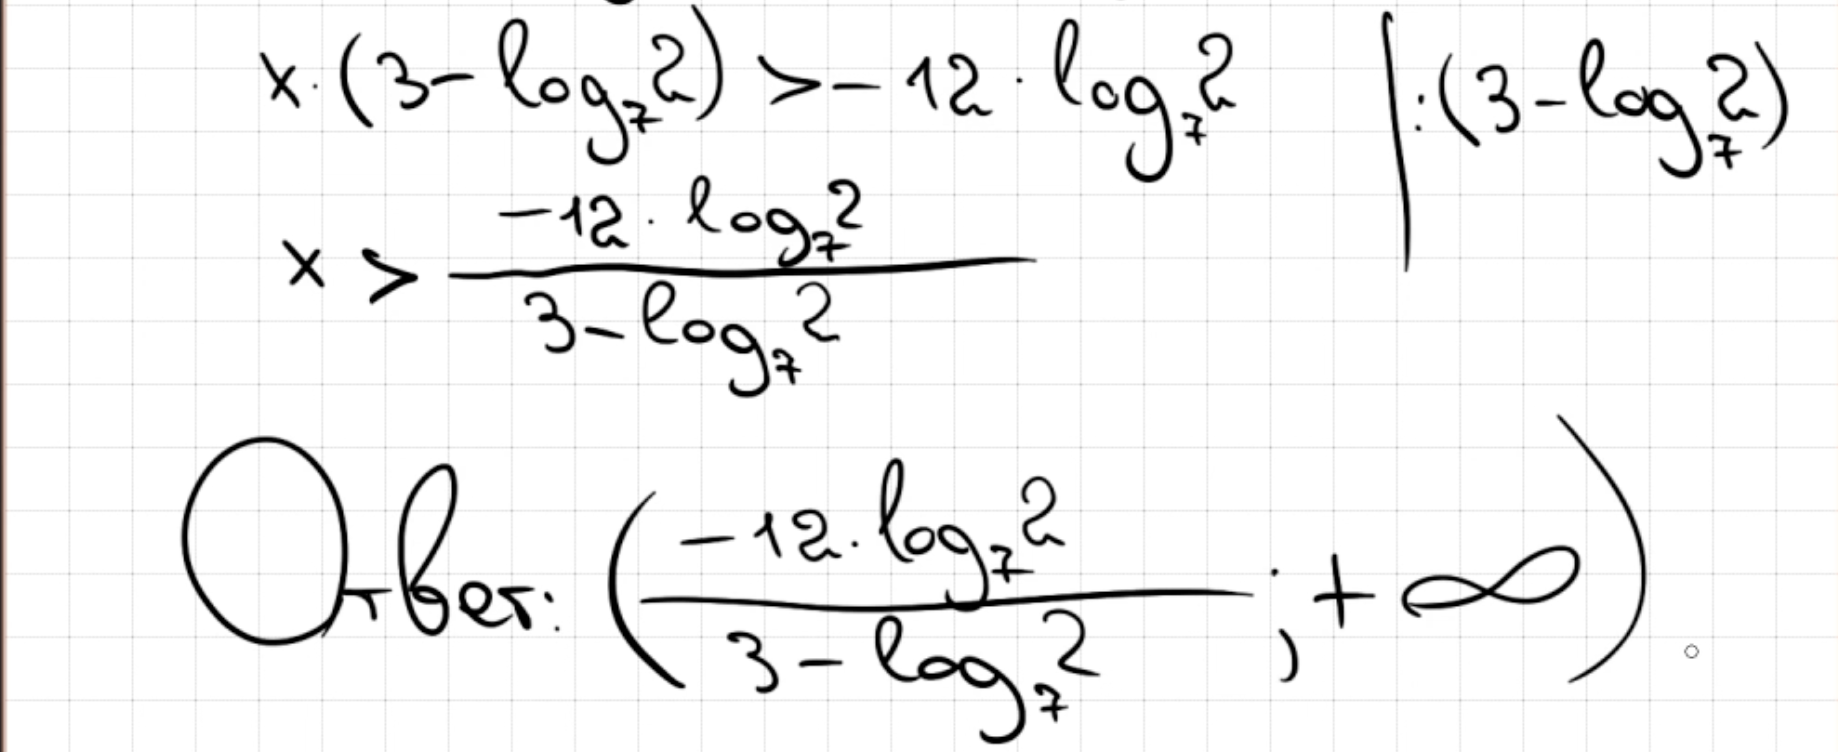 x·(3-log₇2) > -12·log₇2 |:(3-log₇2)
x > (-12·log₇2)/(3-log₇2)
Ответ: ((-12·log₇2)/(3-log₇2); +∞)